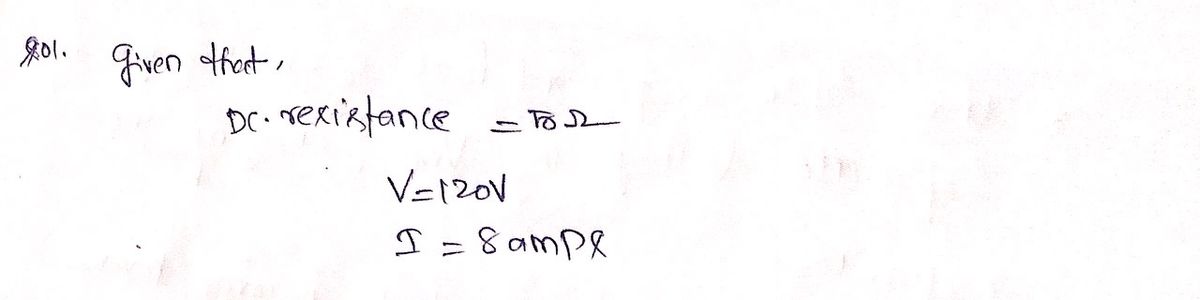 Sol. Given that,
DC. resistance = 10 Ω
V=120V
I = 8 amps